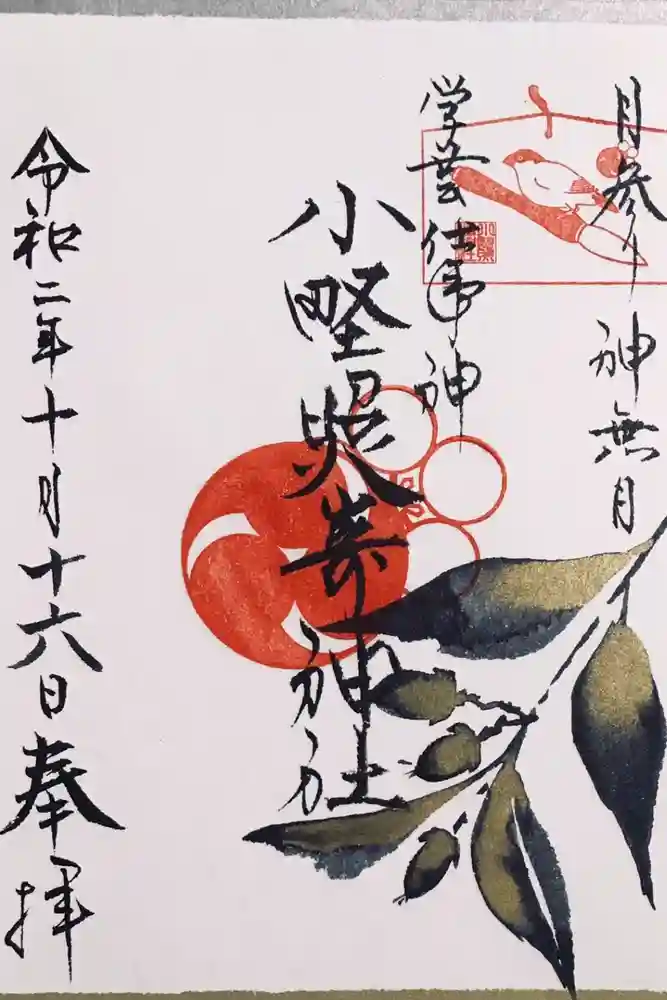 月参り 神無月
学芸 仕事神
小野照崎神社
令和二年十月十六日 奉拝